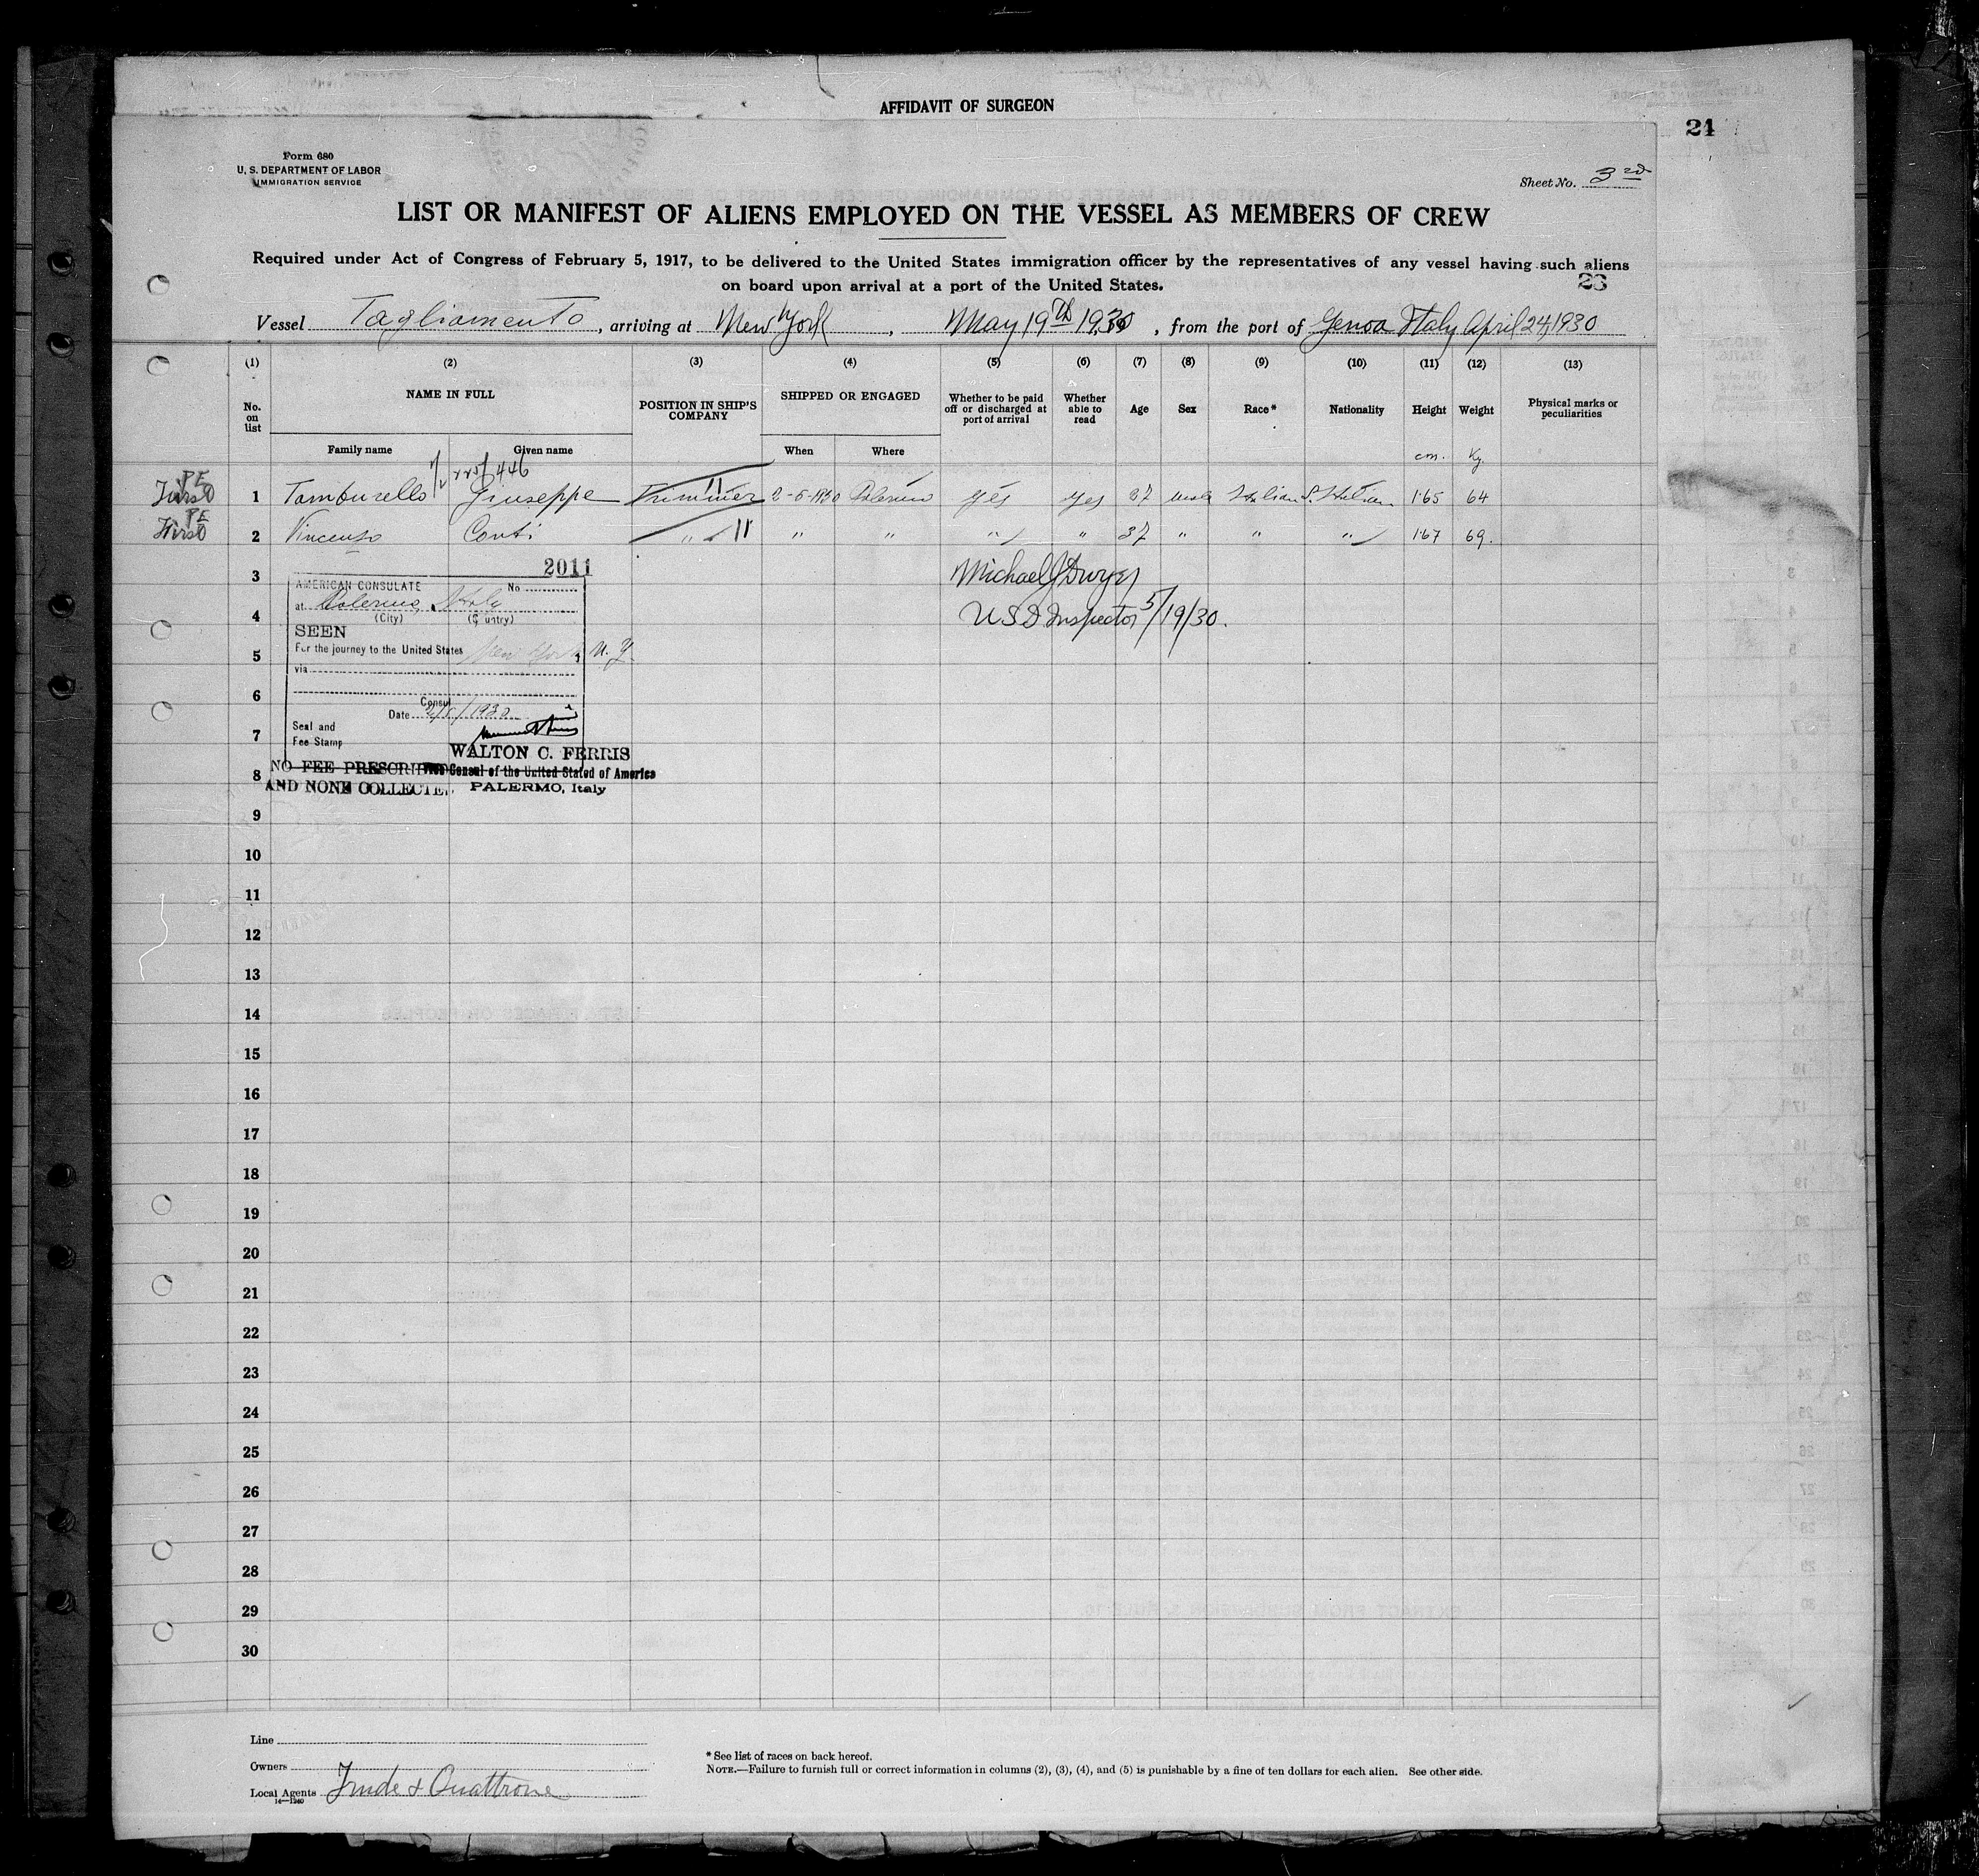 AFFIDAVIT OF SURGEON
21
Form 680
U. S. DEPARTMENT OF LABOR
IMMIGRATION SERVICE
Sheet No. 3rd
LIST OR MANIFEST OF ALIENS EMPLOYED ON THE VESSEL AS MEMBERS OF CREW
Required under Act of Congress of February 5, 1917, to be delivered to the United States immigration officer by the representatives of any vessel having such aliens
on board upon arrival at a port of the United States.
23
Vessel Tagliamento, arriving at New York, May 19th 1930, from the port of Genoa Italy April 24, 1930
(1) (2) (3) (4) (5) (6) (7) (8) (9) (10) (11) (12) (13)
No. on list
NAME IN FULL
Family name Given name
POSITION IN SHIP'S COMPANY
SHIPPED OR ENGAGED
When Where
Whether to be paid off or discharged at port of arrival
Whether able to read
Age Sex Race* Nationality Height Weight
Physical marks or peculiarities
cm. Kg.
446
PE
First 1 Tamburello Giuseppe Trimmer 2-5-1930 Palermo Yes Yes 37 male Italian S. Italian 165 64
PE
First 2 Vincenzo Conti " " " " " 37 " " " 167 69.
2011
3 Michael J Dwyer
AMERICAN CONSULATE No
at Palermo, Italy
4 U S I Inspector 5/19/30.
(City) (Country)
SEEN
5 For the journey to the United States New York, N. Y.
via
6
Consul
Date 2/5/1930
7 Seal and
Fee Stamp
WALTON C. FERRIS
8 NO FEE PRESCRIBED Vice Consul of the United Stated of America
AND NONE COLLECTED PALERMO, Italy
9
10
11
12
13
14
15
16
17
18
19
20
21
22
23
24
25
26
27
28
29
30
Line
Owners
Local Agents Trude & Quattrone
14—1240
* See list of races on back hereof.
NOTE.—Failure to furnish full or correct information in columns (2), (3), (4), and (5) is punishable by a fine of ten dollars for each alien. See other side.